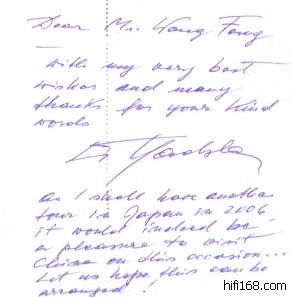 Dear Mr. Wang Fang
– with my very best
wishes and many
thanks for your kind
words
As I shall have another
tour in Japan in 2006
it would indeed be
a pleasure to visit
China on this occasion...
Let us hope this can be
arranged!
hifi168.com